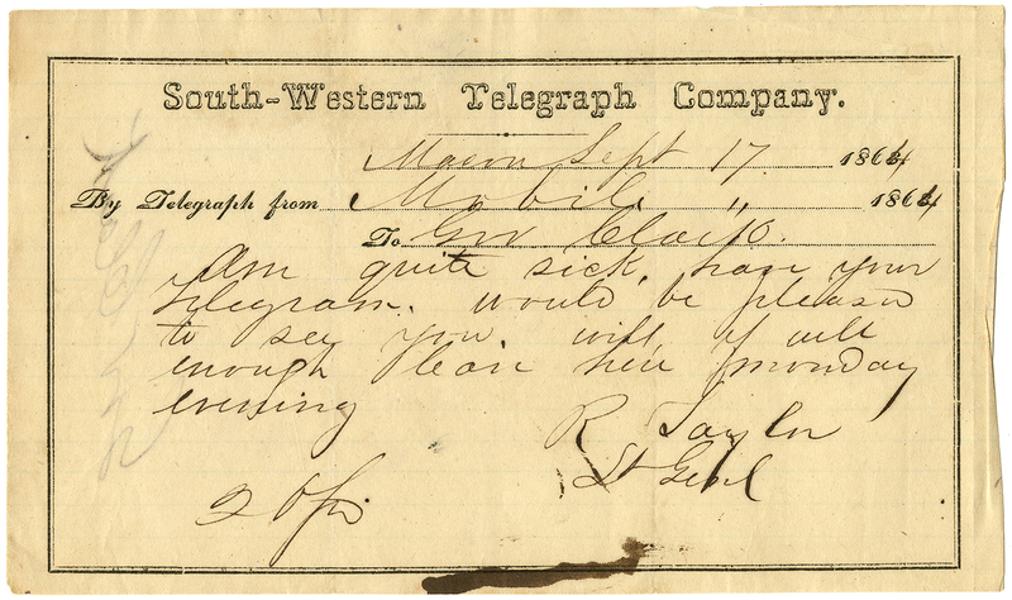 South-Western Telegraph Company.
Macon Sept 17 1864
By Telegraph from Mobile " 1864
To Gov Clark.
Am quite sick, have your
telegram. would be pleased
to see you. will if well
enough leave here monday
evening
R Taylor
Lt Genl